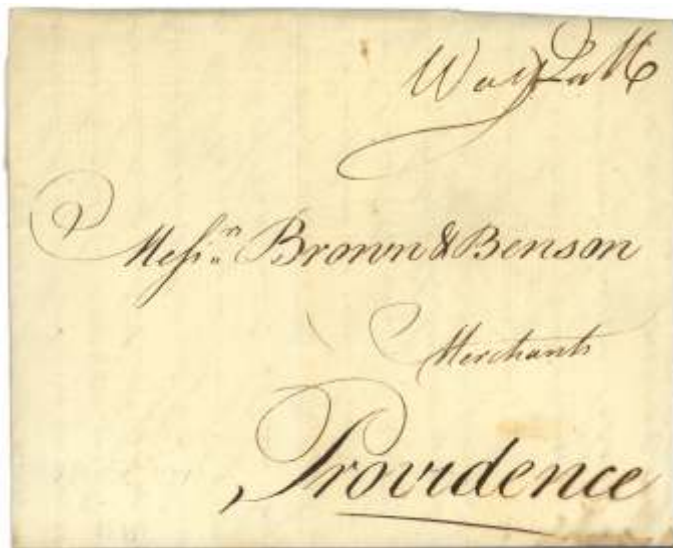 Way
Mess.rs Brown & Benson
Merchants
Providence